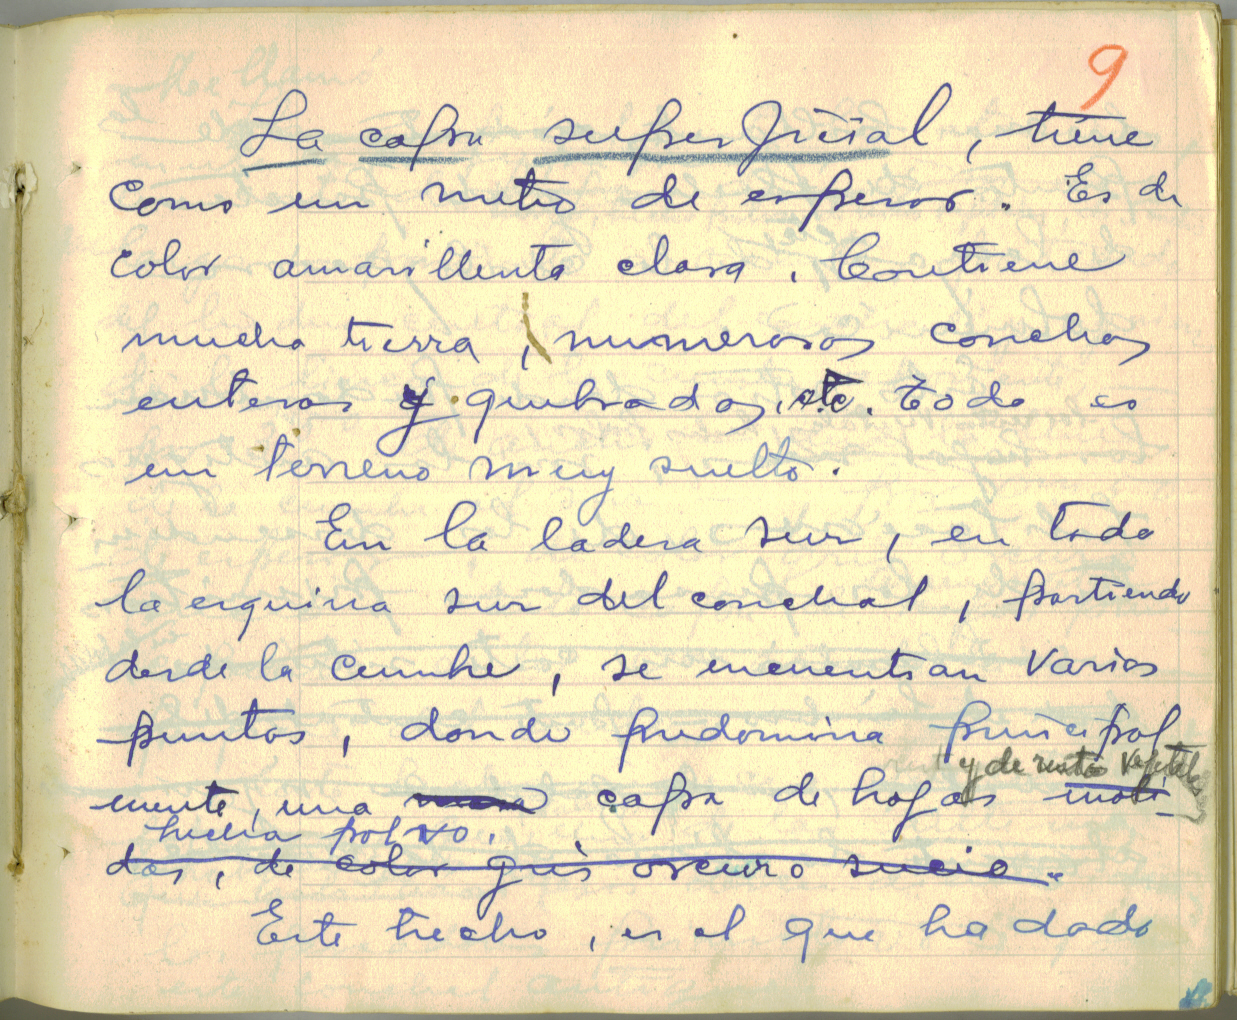 9
La capa superficial, tiene
como un metro de espesor. Es de
color amarillenta clara. Contiene
mucha tierra, numerosas conchas
enteras y quebradas, etc. Todo es
un terreno muy suelto.
En la ladera sur, en toda
la esquina sur del conchal, partiendo
desde la cumbre, se encuentran varios
puntos, donde predomina principal
y de restos vegetales
mente, una capa de hojas moli
hecha polvo.
das, de color gris oscuro sucio.
Este hecho, es el que ha dado